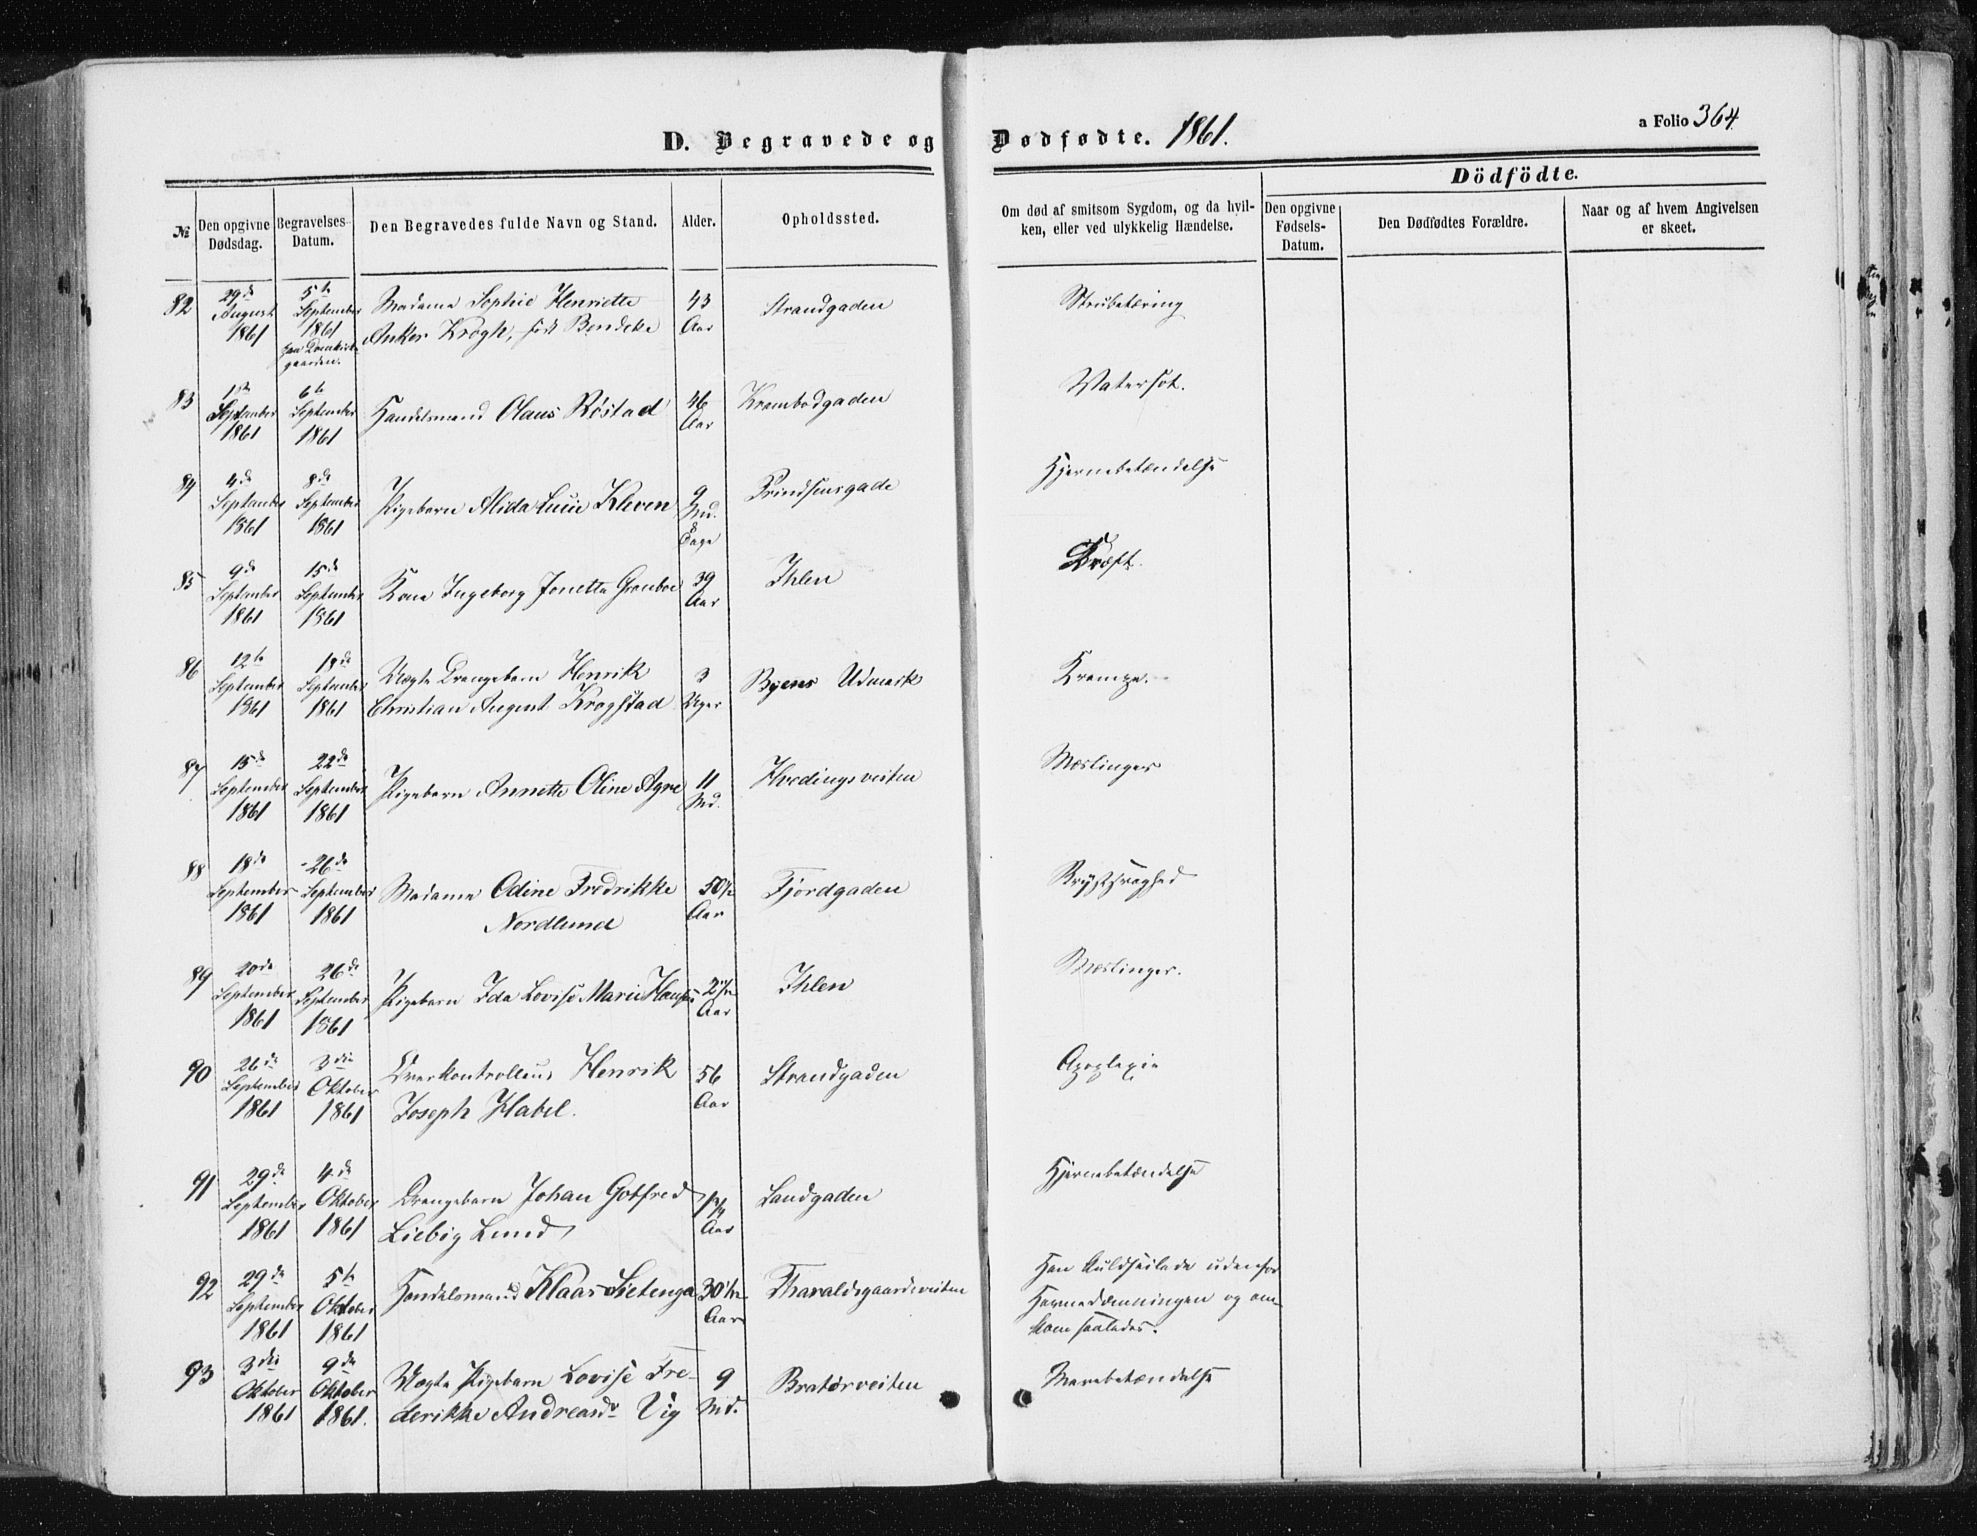 D. Begravede og Dødfødte. 1861.
a Folio 364
Dödfödte.
№
Den opgivne Dødsdag.
Begravelses-Datum.
Den Begravedes fulde Navn og Stand.
Alder.
Opholdssted.
Om død af smitsom Sygdom, og da hvil-
ken, eller ved ulykkelig Hændelse.
Den opgivne Fødsels-Datum.
Den Dødfødtes Forældre.
Naar og af hvem Angivelsen
er skeet.
82 29de August 1861 5te September 1861 gaarden.
Madame Sophie Henriette
Anker Krogh, født Bendeke
43 Aar Strandgaden Strubetæring
83 1ste September 1861 6te September 1861
Handelsmand Olaus Röstad
46 Aar Krambodgaden Vatersot.
84 4de September 1861 8de September 1861
Pigebarn Alida Lucie Kleven
9 Md. 8 Dage Prindsensgade Hjernebetændelse
85 9de September 1861 15de September 1861
Kone Ingeborg Jonetta
39 Aar Ihlen Kræft.
86 12te September 1861 18de September 1861
Uægte Drengebarn Henrik
Christian August Krogstad
3 Uger Byens Udmark Krampe.
87 15de September 1861 22de September 1861
Pigebarn Annette Oline Agre
11 Md. Hvedingsveiten Mæslinger
88 18de September 1861 26de September 1861
Madame Odine Fredrikke
Nordlund
50½ Aar Fjordgaden Brystsvaghed
89 20de September 1861 26de September 1861
Pigebarn Ida Lovise Marie
2½ Aar Ihlen Mæslinger.
90 26de September 1861 3die Oktober 1861
Overkontrolleur Henrik
Joseph Habel.
56 Aar Strandgaden Apoplexie
91 29de September 1861 4de Oktober 1861
Drengebarn Johan Gotfred
Liebig Lund
Aar Sandgaden Hjernebetændelse
92 29de September 1861 5te Oktober 1861
Handelsmand Klaas Sietenga
30½ Aar Tharaldsgaardsveiten
Han kuldseilede udenfor
Havnedæmningen og om-
kom saaledes.
93 3die Oktober 1861 9de Oktober 1861.
Uægte Pigebarn Lovise Fre-
derikke Andreasdr Vig
9 Md. Bratörveiten Mavebetændelse